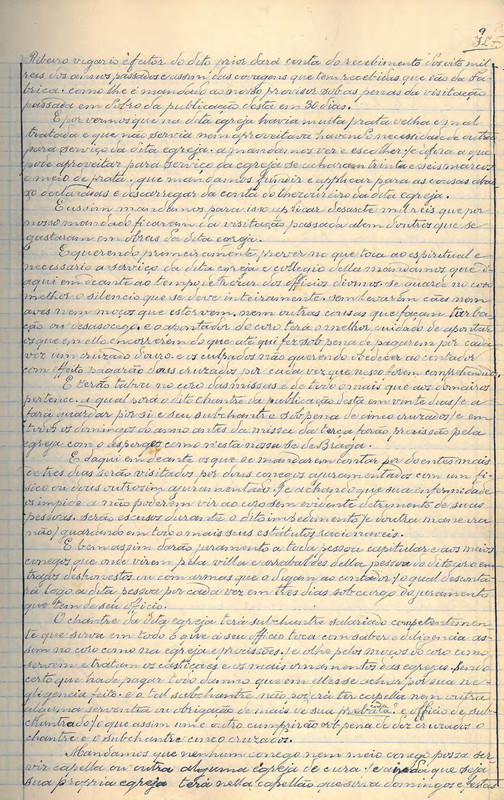 9
Ribeiro vigario e feitor do dito prior dará conta do recebimento dos oito mil
reis dos annos passados e assim das covagens que tem recebidas que são da fa-
brica, como lhe é mandado ao nosso provisor sub as penas da visitação
passada em dobro da publicação d'esta em 30 dias.
E por vermos que na dita egreja havia muita prata velha e mal
tratada e que não servia nem aproveitava havendo necessidade de outra
para serviço da dita egreja, a mandamos ver e escolher e afóra a que
pode aproveitar para serviço da egreja se acharam trinta e seis marcos
e meio de prata, que mandamos fundir e applicar para as cousas abai-
xo declaradas e descarregar da conta do thezoureiro da dita egreja.
E assim mandamos para isso aplicar desasete mil reis que por
nosso mandado ficaram da visitação passada alem d'outros que se
gastaram em obras da dita egreja.
E querendo primeiramente prover no que toca ao espiritual e
necessario a serviço da dita egreja e collegio della mandamos que d'
aqui em deante ao tempo e horas dos officios divinos se guarde no coro
melhor o silencio que se deve inteiramente sem levarem cães nem
aves nem moços que estorvem, nem outras cousas que façam turba-
ção ou desasocego, e o apontador do coro terá o melhor cuidado de apontar
os que em ello encorrerem do que até qui fez sob pena de pagarem por cada
vez um cruzado d'ouro, e os culpados não querendo obedecer ao contador
com effeito pagarão dous cruzados por cada vez que nesso forem comprehendidos.
E terão tabua no coro das missas e de todo o mais que aos domairos
pertence, a qual fará o dito chantre da publicação desta em vinte dias e a
fará guardar por si e seu subchantre sob pena de cinco cruzados e em
todos os domingos do anno antes da missa da terça farão procissão pela
egreja com o asperges como n'esta nossa sé de Braga.
E d'aqui em deante os que se mandarem contar por doentes mais
de tres dias serão visitados por dous conegos ajuramentados com um fi-
sico ou dous outrosim ajuramentado, e achando que sua enfermidade
os impide a não poderem vir ao coro sem evidente detrimento de suas
pessoas, serão escusos durante o dito impedimento e doutra maneira
não guardando em todo o mais seus estatutos racionaveis.
E bem assim darão juramento a toda pessoa capitular e aos meios
conegos que onde virem pela villa e arrabaldes della pessoa do dito coro em
trajos deshonestos ou com armas que o digam ao contador o qual descontá-
rá logo a dita pessoa por cada vez em tres dias sob cargo do juramento
que tem de seu officio.
O chantre da dita egreja terá subchantre salariado competentemen-
te que sirva em todo o que a seu officio toca com saber e diligencia as-
sim no coro como na egreja e procissões, e olhe pelos moços do coro como
servem e tratam os castiçaes e os mais ornamentos das egrejas, sendo
certo que ha de pagar todo damno que em elles se achar por sua ne-
gligencia feito, e o tal subchantre não poderá ter capella nem outra
alguma serventia ou obrigação de mais de sua prebenda e officio de sub-
chantrado, o que assim um e outro cumprirão sob pena de dez cruzados o
chantre e o subchantre cinco cruzados.
Mandamos que nenhum conego nem meio conego possa ser-
vir capella ou outra alguma egreja de cura, e ainda que seja
sua propria egreja terá nella capellão que sirva domingos e festas